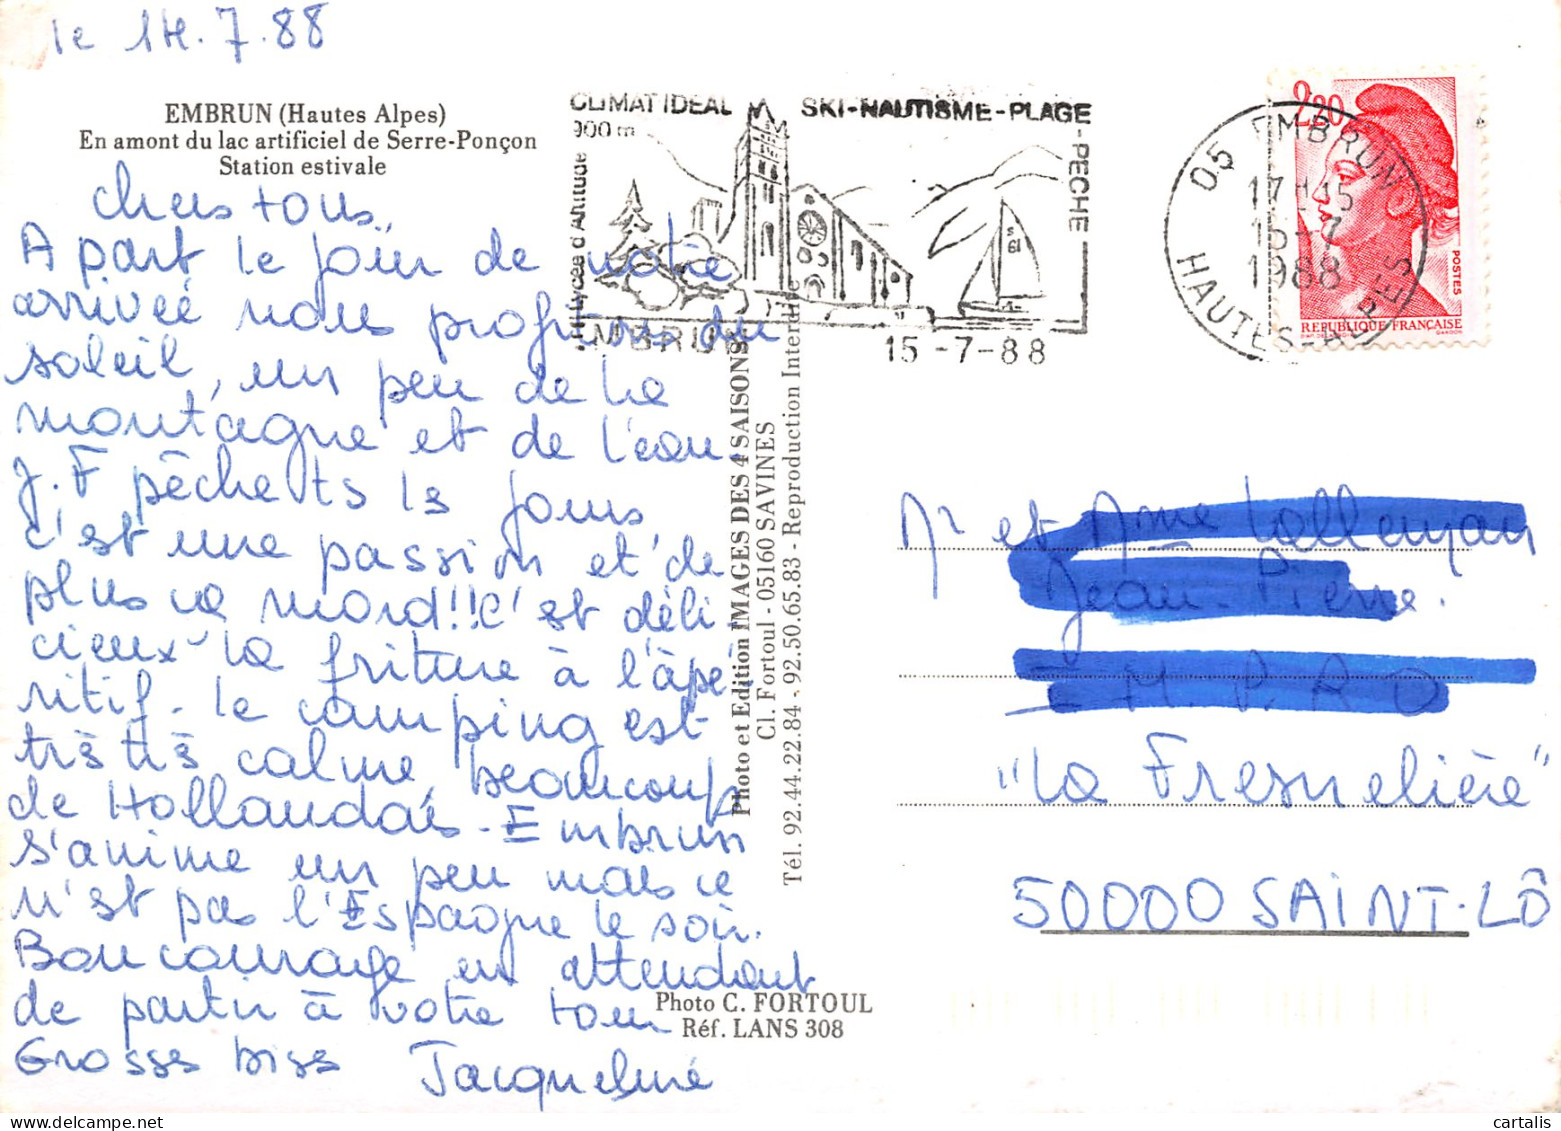 le 14.7.88
EMBRUN (Hautes Alpes)
En amont du lac artificiel de Serre-Ponçon
Station estivale
chers tous,
A part le jour de notre
arrivée nous profitons du
soleil, un peu de la
montagne et de l'eau.
J.F pêche ts ls jours
c'est une passion et de
plus ca mord!! c'est déli-
cieux la friture à l'apé
ritif. Le camping est
très très calme, beaucoup
de Hollandais. Embrun
s'anime un peu mais ce
n'est pas l'Espagne le soir.
Bon courage en attendant
de partir à votre tour
Grosses bises Jacqueline
CLIMAT IDEAL SKI-NAUTISME-PLAGE
-PECHE
900 m
Lycée d'Altitude
EMBRUN
15-7-88
05 EMBRUN
17H45
15-7
1988
HAUTES-ALPES
2,20
POSTES
REPUBLIQUE FRANÇAISE
GANDON
Photo et Edition IMAGES DES 4 SAISONS
Cl. Fortoul - 05160 SAVINES
Tél. 92.44.22.84 - 92.50.65.83 - Reproduction Interdite
Mr et Mme
Jean-Pierre.
"La Fresnelière"
50000 SAINT-LÔ
Photo C. FORTOUL
Réf. LANS 308
cartalis